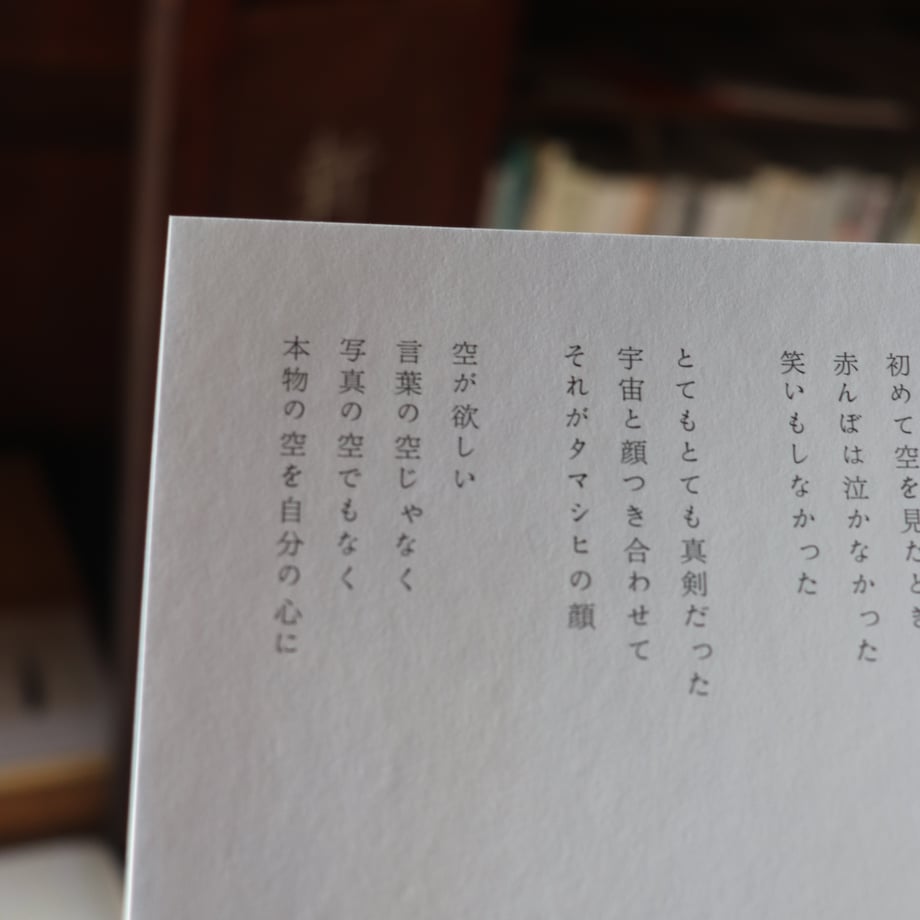 初めて空を見たとき
赤んぼは泣かなかった
笑いもしなかった
とてもとても真剣だった
宇宙と顔つき合わせて
それがタマシヒの顔
空が欲しい
言葉の空じゃなく
写真の空でもなく
本物の空を自分の心に